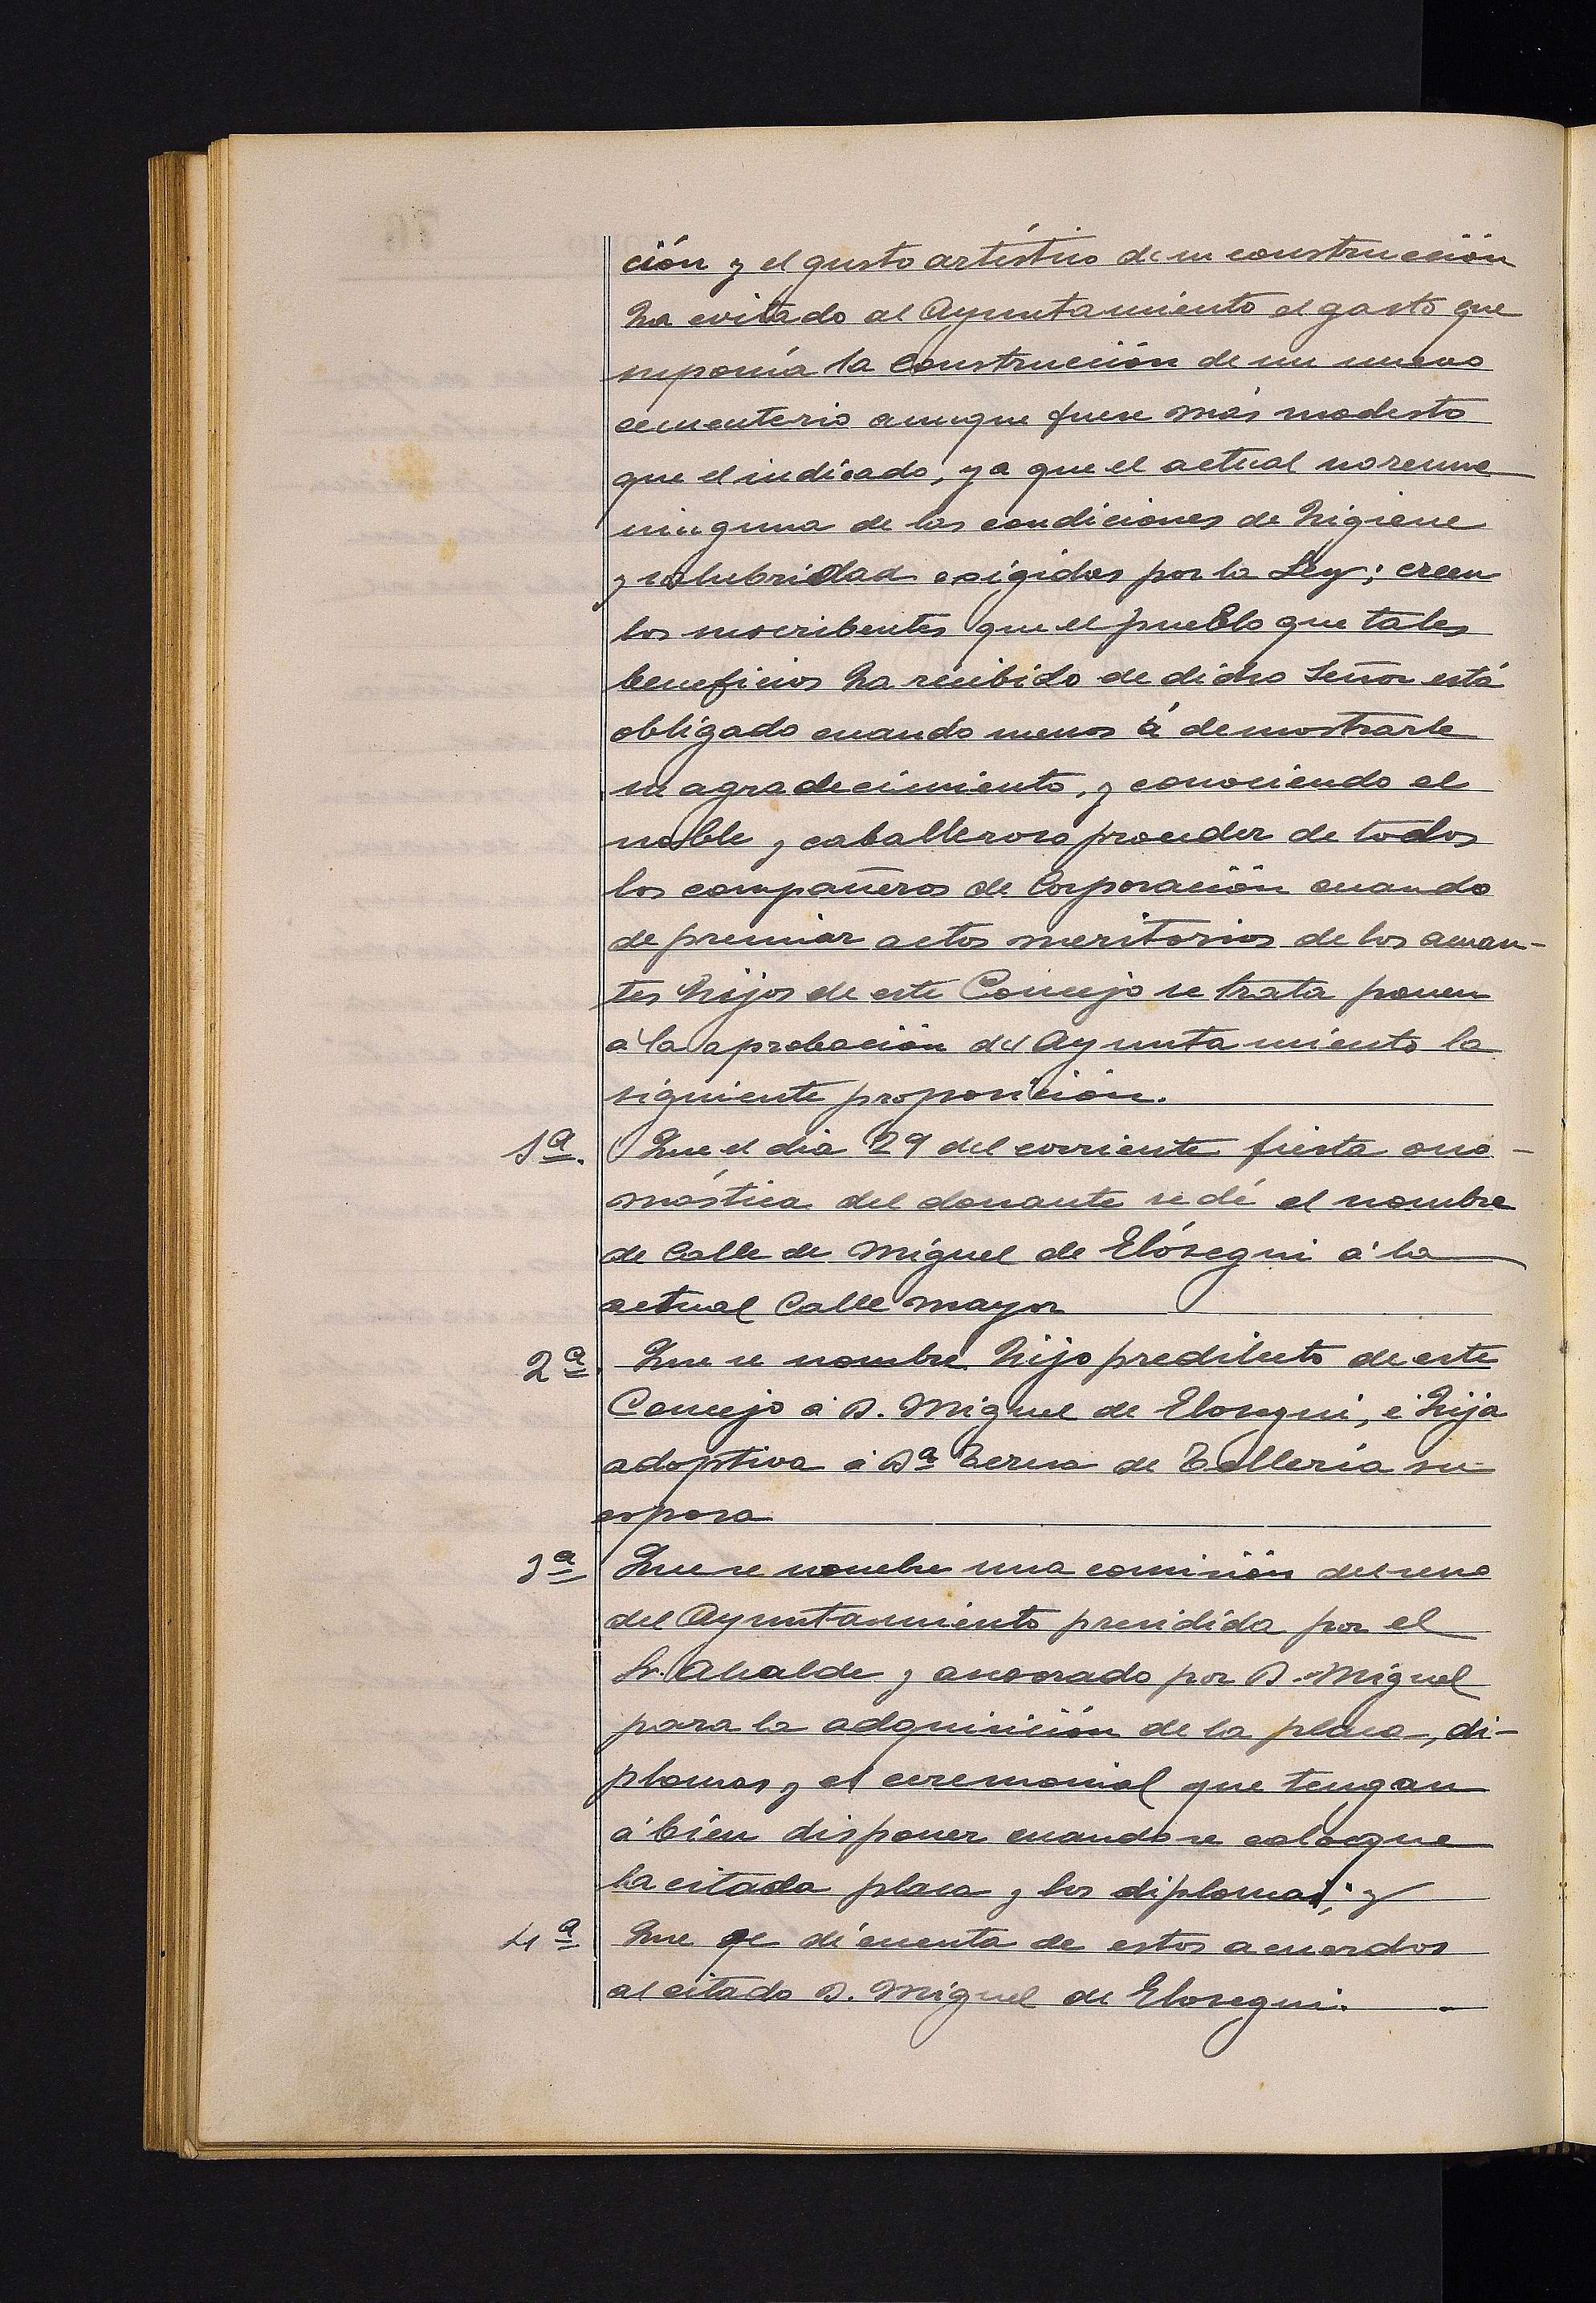 ción y el gusto artístico de su construcción
ha evitado al Ayuntamiento el gasto que
suponía la construcción de un nuevo
cementerio aunque fuese más modesto
que el indicado, ya que el actual no reune
ninguna de las condiciones de higiene
y salubridad exigidas por la Ley; creen
los suscribentes que el pueblo que tales
beneficios ha recibido de dicho Señor está
obligado cuando menos á demostrarle
su agradecimiento, y conociendo el
noble y caballeroso proceder de todos
los compañeros de Corporación cuando
de premiar actos meritorios de los aman-
tes hijos de este Concejo se trata ponen
a la aprobación del Ayuntamiento la
siguiente proposición.
1ª. Que el dia 29 del corriente fiesta ono-
mástica del donante se dé el nombre
de Calle de Miguel de Elósegui á la
actual Calle mayor
2ª. Que se nombre hijo predilecto de este
Concejo á D. Miguel de Elosegui, é hija
adoptiva á Dª Teresa de Tellería su
esposa
3ª Que se nombre una comisión del seno
del Ayuntamiento presidida por el
Sr. Alcalde y asesorado por D. Miguel
para la adquisición de la placa, di-
plomas y el ceremonial que tengan
á bien disponer cuando se coloque
la citada placa y los diplomas; y
4ª Que se dé cuenta de estos acuerdos
al citado D. Miguel de Elosegui.